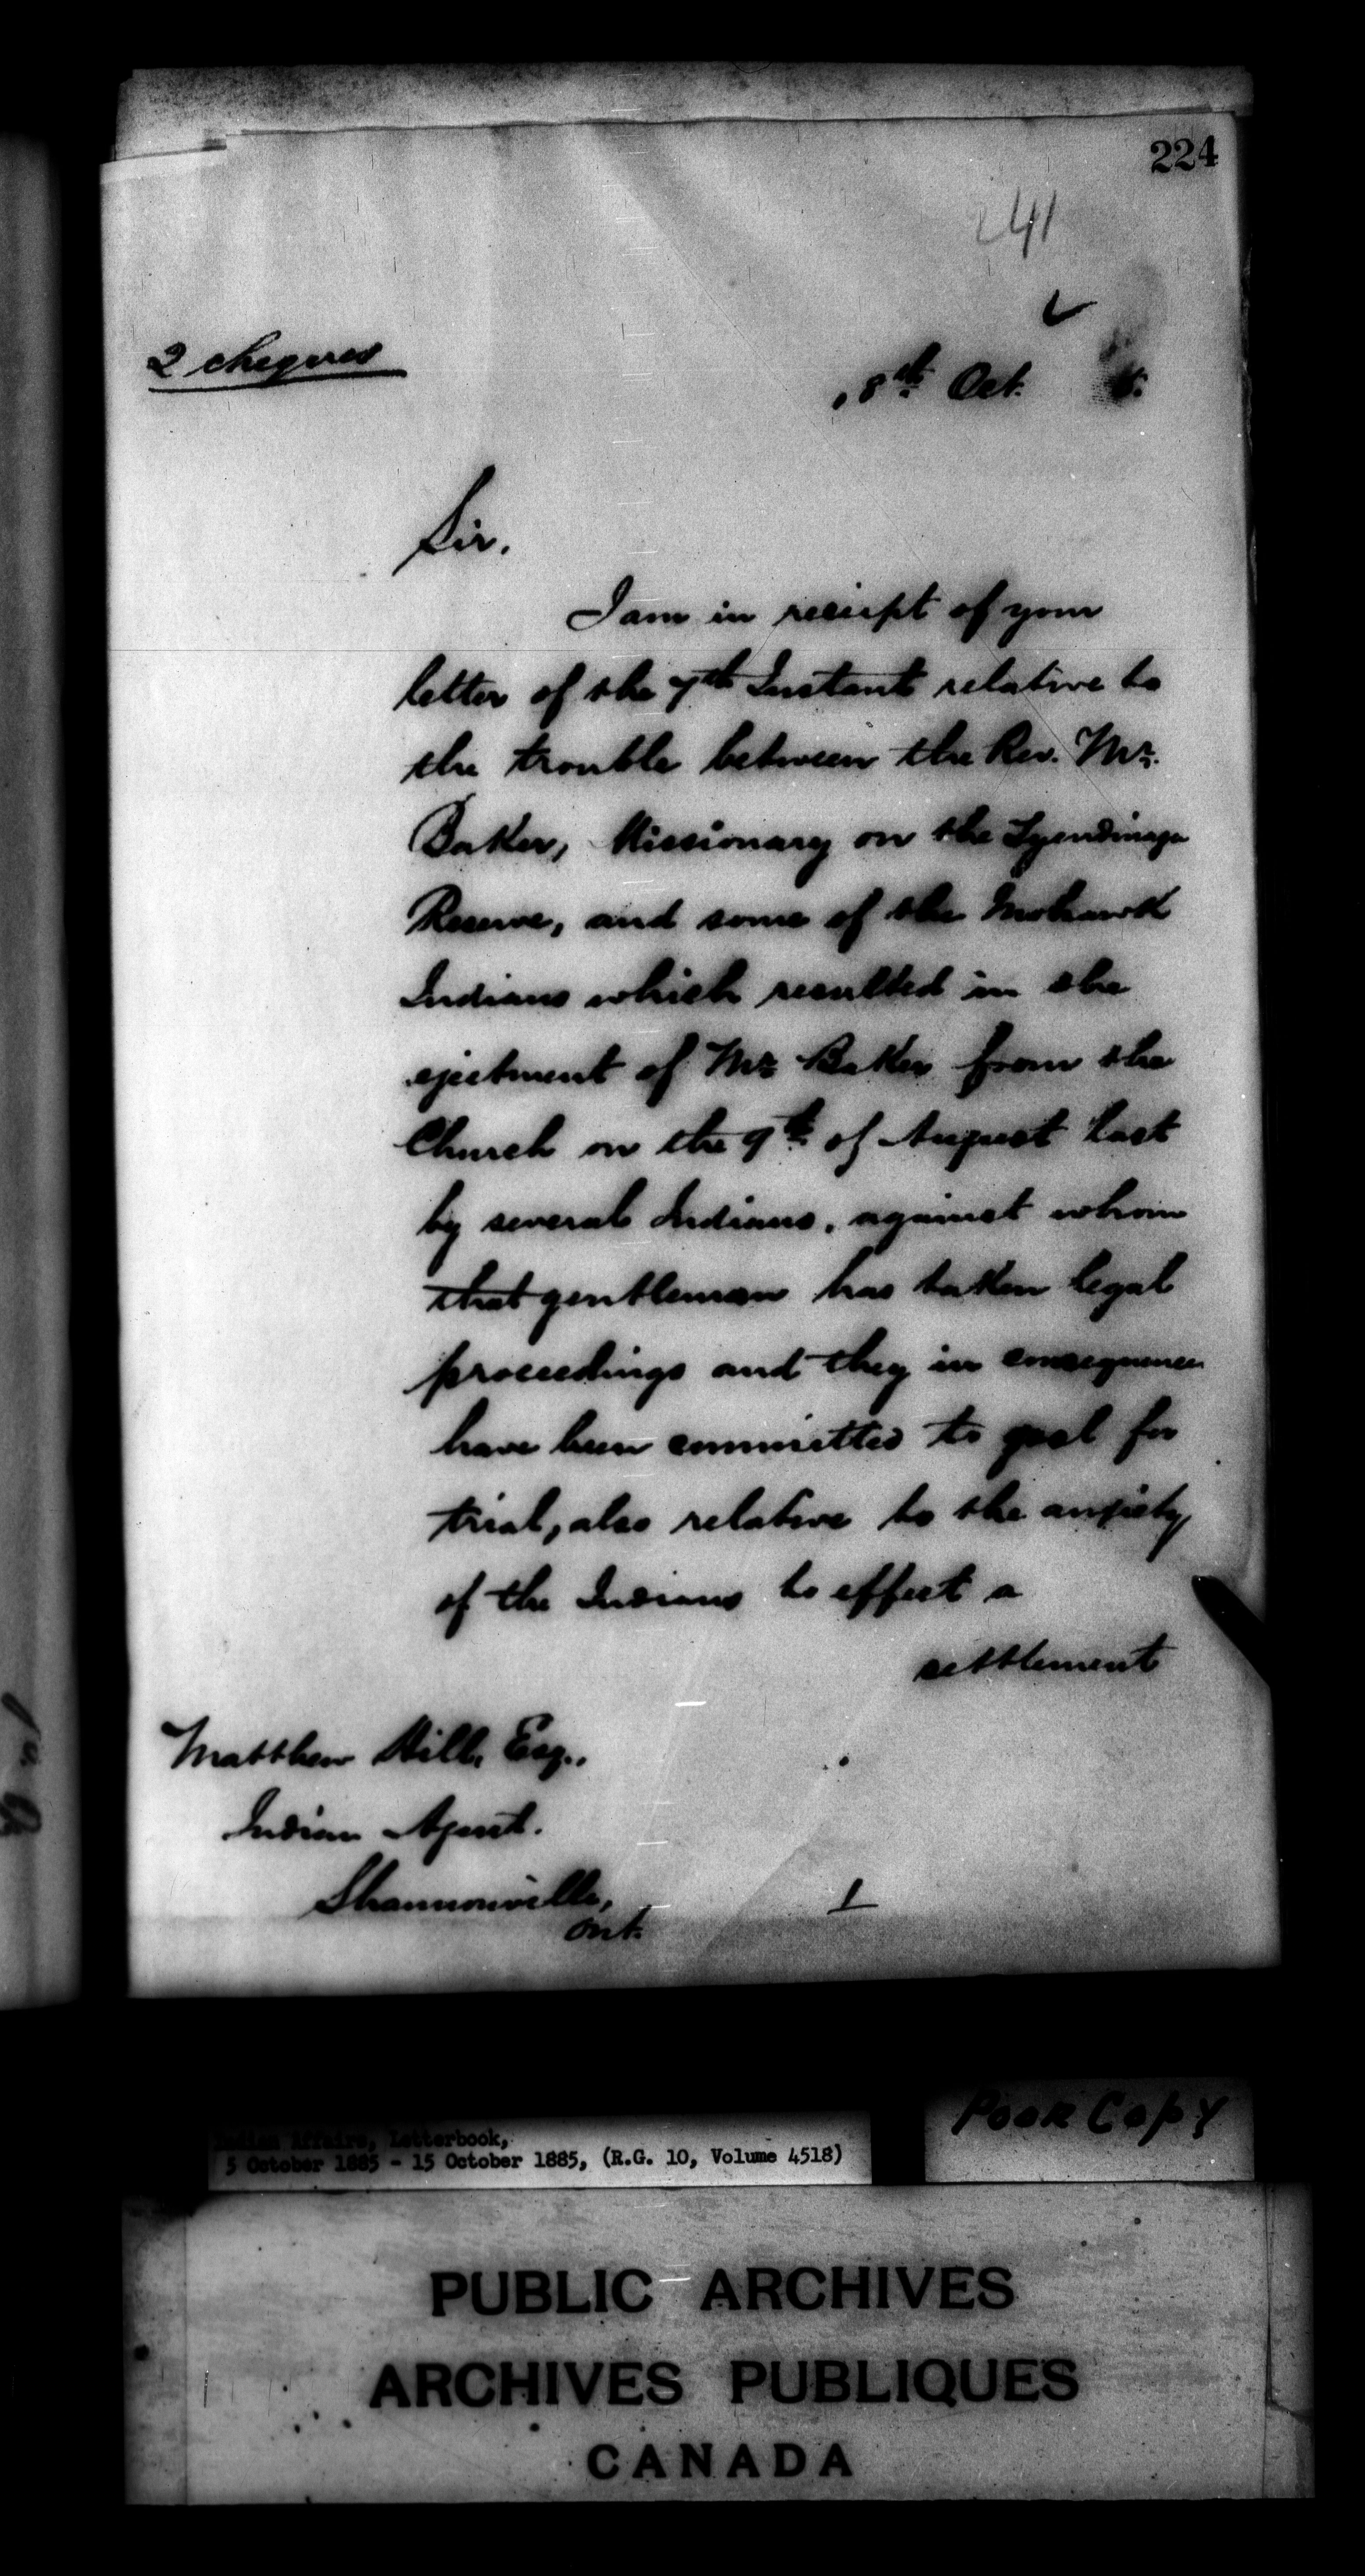 224
241
2 cheques
8th Oct. 5.
Sir,
I am in receipt of your
letter of the 7th Instant relative to
the trouble between the Rev. Mr.
Baker, Missionary on the Tyendinaga
Reserve, and some of the Mohawk
Indians which resulted in the
ejectment of Mr Baker from the
Church on the 9th of August last
by several Indians, against whom
that gentleman has taken legal
proceedings and they in consequence
have been committed to gaol for
trial, also relative to the anxiety
of the Indians to effect a
settlement
Matthew Hill, Esq.,
Indian Agent.
Shannonville,
Ont.
1
Poor Copy
Indian Affairs, Letterbook,
5 October 1885 - 15 October 1885, (R.G. 10, Volume 4518)
PUBLIC ARCHIVES
ARCHIVES PUBLIQUES
CANADA